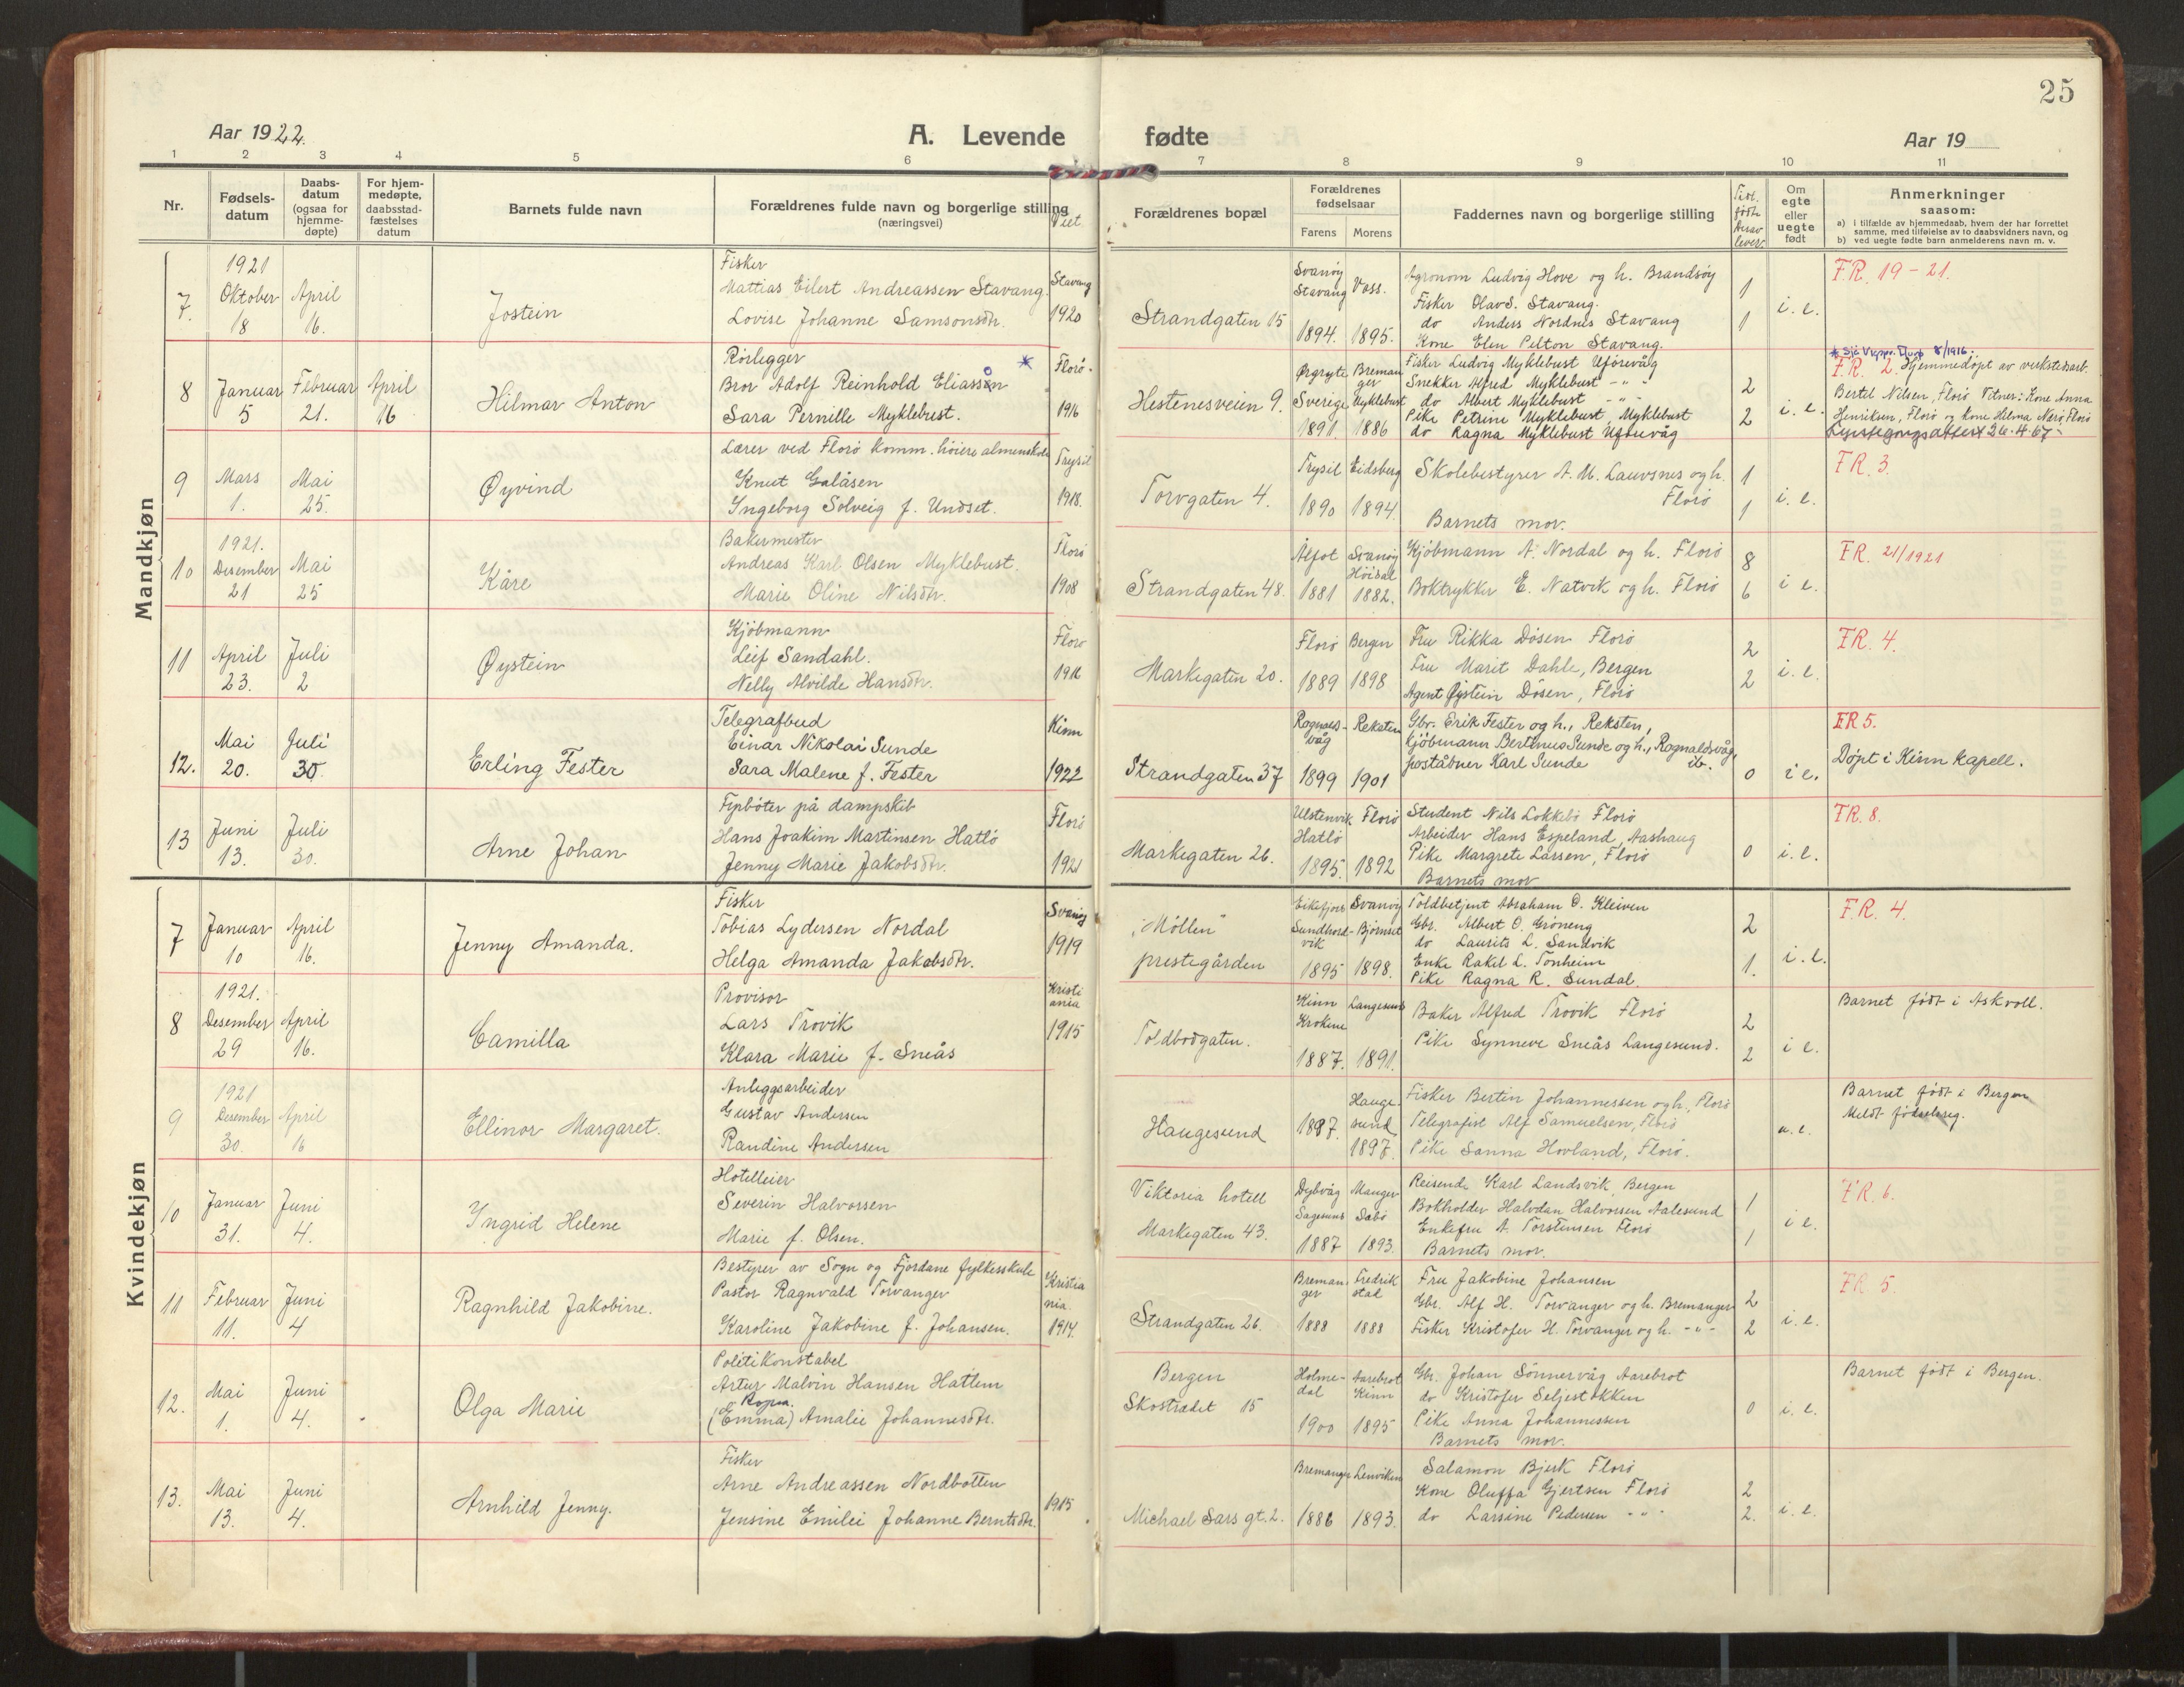 25
Aar 1922.
A. Levende fødte
Aar 19
1 2 3 4 5 6 7 8 9 10 11
Nr.
Fødsels-
datum
Daabs-
datum
(ogsaa for
hjemme-
døpte)
For hjem-
medøpte,
daabsstad-
fæstelses
datum
Barnets fulde navn
Forældrenes fulde navn og borgerlige stilling
(næringsvei)
Viet.
Forældrenes bopæl
Forældrenes
fødselsaar
Farens Morens
Faddernes navn og borgerlige stilling
Tidl.
fødte
herav
lever.
Om
egte
eller
uegte
født
Anmerkninger
saasom:
a) i tilfælde av hjemmedaab, hvem der har forrettet
samme, med tilføielse av to daabsvidners navn, og
b) ved uegte fødte barn anmelderens navn m. v.
Mandkjøn
7.
1921
Oktober
18
April
16.
Jostein
Fisker
Mattias Eilert Andreassen Stavang.
Lovise Johanne Samsonsdtr.
Stavang
1920
Strandgaten 15
Svanøy
Stavang
1894.
Voss.
1895.
Agronom Ludvig Hove og h. Brandsøy
Fisker Olav S. Stavang.
do Anders Nordnes Stavang
Kone Elen Pelton Stavang.
1
1
i. e.
F.R. 19-21.
8
Januar
5
Februar
21.
April
16
Hilmar Anton
Rørlegger *
Bror Adolf Reinhold Eliassen
Sara Pernille Myklebust.
Florø.
1916
Hestenesveien 9.
Ørgryte
Sverige
1891.
Breman
ger
Myklebust
1886
Fisker Ludvig Myklebust Uførevåg
Snekker Alfred Myklebust - " -
do Albert Myklebust - " -
Pike Petrine Myklebust Myklebust
do Ragna Myklebust Uførevåg
2
2
i. e.
* Sjå 8/1916.
F.R. 2. Hjemmedøpt av verkstedsarb.
Bertel Nilsen, Florø Vitner: Kone Anna
Henriksen, Florø og Kone Hilma Nærø, Florø
26.4.67
9
Mars
1.
Mai
25.
Øyvind
Lærer ved Florø komm. høiere almenskole
Knut Galåsen
Ingeborg Solveig f. Undset.
Trysil
1918.
Torvgaten 4.
Trysil
1890
Eidsberg
1894.
Skolebestyrer A. M. Lauvsnes og h.
Florø
Barnets mor.
1
1
i. e.
F.R. 3.
10
1921.
Desember
21
Mai
25
Kåre
Bakermester
Andreas Karl Olsen Myklebust.
Marie Oline Nilsdtr.
Florø
1908
Strandgaten 48.
Ålfot
1881
Svanøy
Høidal
1882.
Kjøbmann A. Nordal og h. Florø
Boktrykker E. Natvik og h. Florø
8
6
i e.
F.R. 21/1921
11
April
23.
Juli
2
Øystein
Kjøbmann
Leif Sandahl.
Nelly Alvilde Hansdtr.
Florø
Markegaten 20.
Florø
1889
Bergen
1898
Fru Rikka Døsen Florø
Fru Marit Dahle, Bergen
Agent Øystein Døsen, Florø
2
2
i. e.
F.R. 4.
12.
Mai
20.
Juli
30.
Erling Fester
Telegrafbud
Einar Nikolai Sunde
Sara Malene f. Fester
Kinn
1922
Strandgaten 37
Rognalds-
våg
1899
Reksten
1901
Gbr. Erik Fester og h., Reksten,
kjøbmann Bertinus Sunde og h., Rognaldsvåg,
poståbner Karl Sunde ib.
0
i e.
F.R 5.
Døpt i Kinn kapell.
13
Juni
13.
Juli
30.
Arne Johan
Fyrbøter på dampskib
Hans Joakim Martinsen Hatlø
Jenny Marie Jakobsdtr.
Florø
1921
Markegaten 26.
Ulstenvik
Hatlø
1895.
Florø
1892
Student Nils Løkkebø Florø
Arbeider Hans Espeland, Aashaug
Pike Margrete Larsen, Florø
Barnets mor
0
i. e.
F.R. 8.
Kvindekjøn
7
Januar
10
April
16.
Jenny Amanda.
Fisker
Tobias Lydersen Nordal
Helga Amanda Jakobsdtr.
Svanøy
1919
"Møllen"
prestegården
Eikefjord
Sundhord-
vik
1895
Svanøy
Bjørnset
1898.
Toldbetjent Abraham O. Kleiven
Gbr. Albert O. Grøneng
do Laurits L. Sandvik
Enke Rakel L. Tonheim
Pike Ragna R. Sundal.
2
1.
i. e.
F.R. 4.
8
1921.
Desember
29
April
16.
Camilla
Provisor
Lars Trovik
Klara Marie f. Sneås
Kristi
ania
1915
Toldbodgaten.
Kinn
Krokene
1887.
Langesund
1891.
Baker Alfred Trovik Florø
Pike Synneve Sneås Langesund.
2
2
i e.
Barnet født i Askvoll.
9
1921
Desember
30.
April
16
Ellinor Margaret.
Anleggsarbeider
Gustav Andersen
Randine Andersen
Haugesund
1887.
Hauge-
sund
1897.
Fisker Bertin Johannessen og h., Florø
Telegrafist Alf Samuelsen, Florø
Pike Sanna Hovland, Florø.
u. e.
Barnet født i Bergen
Meldt fødselsreg.
10
Januar
31.
Juni
4.
Ingrid Helene
Hotelleier
Severin Halvorsen
Marie f. Olsen.
Viktoria hotell
Markegaten 43.
Dybvåg
Sagesund
1887
Manger
Sæbø
1893.
Reisende Karl Landsvik, Bergen
Bokholder Halvdan Halvorsen Aalesund
Enkefru A. Torstensen Florø
Barnets mor.
1
1
i e.
F.R. 6.
11
Februar
11.
Juni
4
Ragnhild Jakobine.
Bestyrer av Sogn og Fjordane fylkesskule
Pastor Ragnvald Torvanger
Karoline Jakobine f. Johansen.
Kristia
nia.
1914.
Strandgaten 26.
Breman
ger
1888
Fredrik
stad
1888
Fru Jakobine Johansen
Gbr. Alf H. Torvanger og h. Bremanger
Fisker Kristofer H. Torvanger og h. - " -
2
2
i. e.
F.R. 5.
12.
Mai
1.
Juni
4.
Olga Marie
Politikonstabel
Artur Malvin Hansen Hatlem
Ragna.
(Emma) Amalie Johannesdtr.
Bergen
Skostrædet 15
Holme-
dal
1900
Aarebrot
Kinn
1895
Gbr. Johan Sønnervåg Aarebrot
do Kristofer Seljestokken
Pike Anna Johannessen
Barnets mor.
0
i. e.
Barnet født i Bergen.
13.
Mai
13.
Juni
4.
Arnhild Jenny.
Fisker
Arne Andreassen Nordbotten
Jensine Emilei Johanne Berntsdtr.
1915
Michael Sars gt. 2.
Bremanger
1886
Lenviken
1893.
Salamon Bjerk Florø
Kone Oluffa Gjertsen Florø
do Larsine Pedersen - " -
2
2.
i. e.